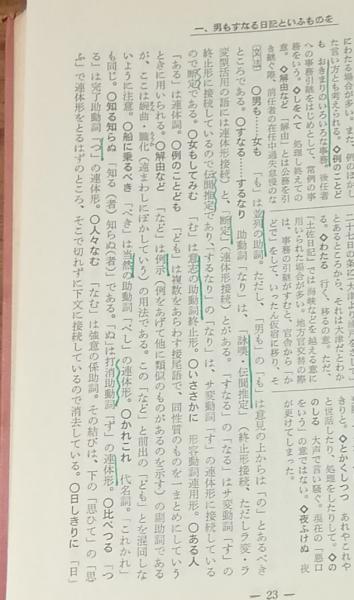 一、男もすなる日記といふものを
にわたる場合が多い。また、例のほかが
た言い方とも考えられる。◇例のことど
も おきまりのいろいろな事務。後任者
への事務引継ぎをはじめとして、常例の事
務をいう。◇しをへて 処理し終えての
意。◇解由など 「解由」とは公務を引
き継ぐ際、前任者の在任中過失怠慢のな
とあるところから、それは大津だとわか
る。◇わたる 行く、移るの意。ただ、
『土佐日記』では海峡などを越える意に
用いられた場合が多い。地方官交替の際
は、事務の引継がすむと、官舎からかど
で」をして、いったん仮宮に移り、そ
きりと。◇とかくしつつ あれやこれや
と世話したり、処理をしたりして。◇の
のしる 大声で言い騒ぐ。現在の「悪口
をいう」の意ではない。◇夜ふけぬ 夜
が更けてしまった。
〔文法〕 ○男も……女も 「も」は並列の助詞。ただし、「男も」の「も」は意見の上からは「の」とあるべき
ところである。○すなる……するなり 助動詞「なり」は、「詠嘆・伝聞推定」（終止形接続、ただしラ変・ラ
変型活用の語には連体形接続）と、断定（連体形接続）とがある。「すなる」の「なる」はサ変動詞「す」の
終止形に接続しているので伝聞推定であり、「するなり」の「なり」は、サ変動詞「す」の連体形に接続している
ので断定である。○女もしてみむ 「む」は意志の助動詞終止形。○いささかに 形容動詞連用形。○ある人
「ある」は連体詞。○例のことども 「ども」は複数をあらわす接尾語で、同性質のものを一まとめにしていう
ときに用いられる。○解由など 「など」は例示（例をあげて他に類似のものがあるのを示す）の副助詞である
が、ここは婉曲・朧化（遠まわしにぼかしていう）の用法である。この「など」と前出の「ども」とを混同しな
いように注意。○船に乗るべき 「べき」は当然の助動詞「べし」の連体形。○かれこれ 代名詞。「これかれ」
も同じ。○知る知らぬ 「知る（者）知らぬ（者）」である。「ぬ」は打消助動詞「ず」の連体形。○比べつる 「つ
る」は完了助動詞「つ」の連体形。○人々なむ 「なむ」は強意の係助詞。その結びは、下の「思ひて」の「思
ふ」で連体形をとるはずのところ、そこで切れずに下文に接続しているので消去している。○日しきりに 「日」
— 23 —